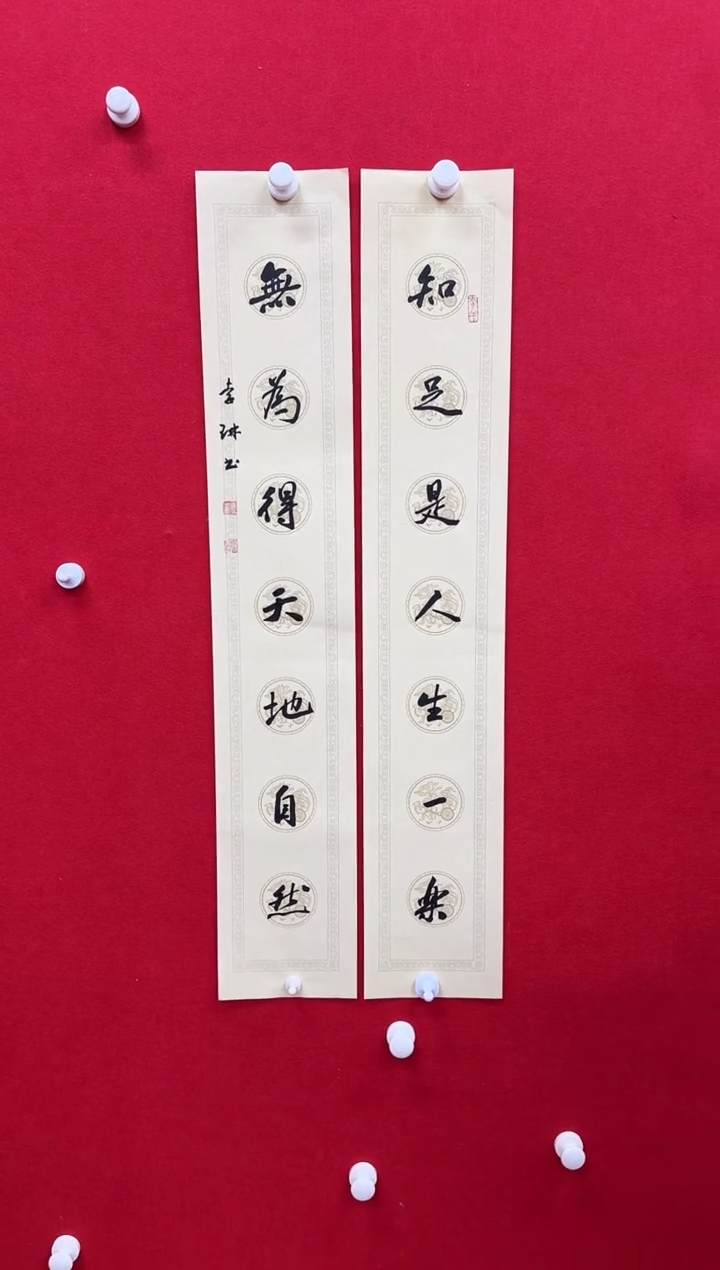 知足是人生一樂
無為得天地自然
李琳书